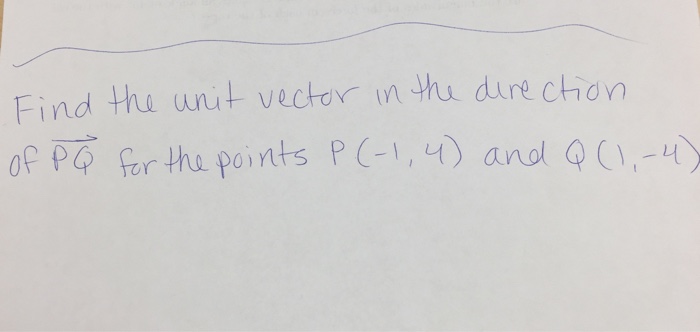 Find the unit vector in the direction
of PQ for the points P(-1, 4) and Q(1,-4)